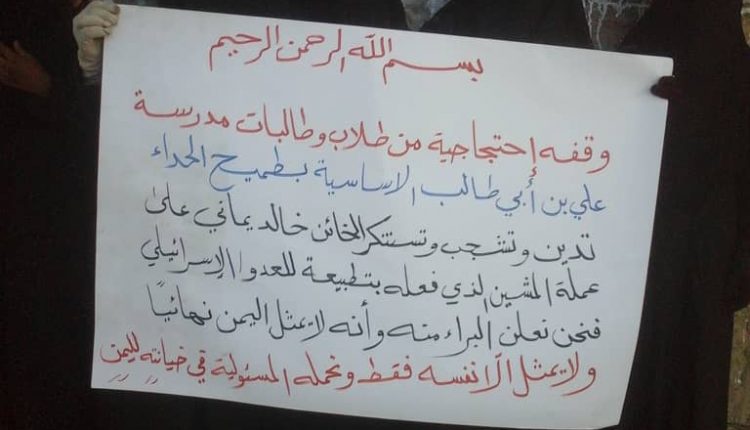 بسم الله الرحمن الرحيم
وقفه إحتجاجية من طلاب وطالبات مدرسة
علي بن أبي طالب الاساسية بطميح الحداء
تدين وتشجب وتستنكر الخائن خالد يماني على
عملة المشين الذي فعله بتطبيعة للعدو الإسرائيلي
فنحن نعلن البراء منه وأنه لا يمثل اليمن نهائيًا
ولا يمثل الا نفسه فقط ونحمله المسئولية في خيانته لليمن